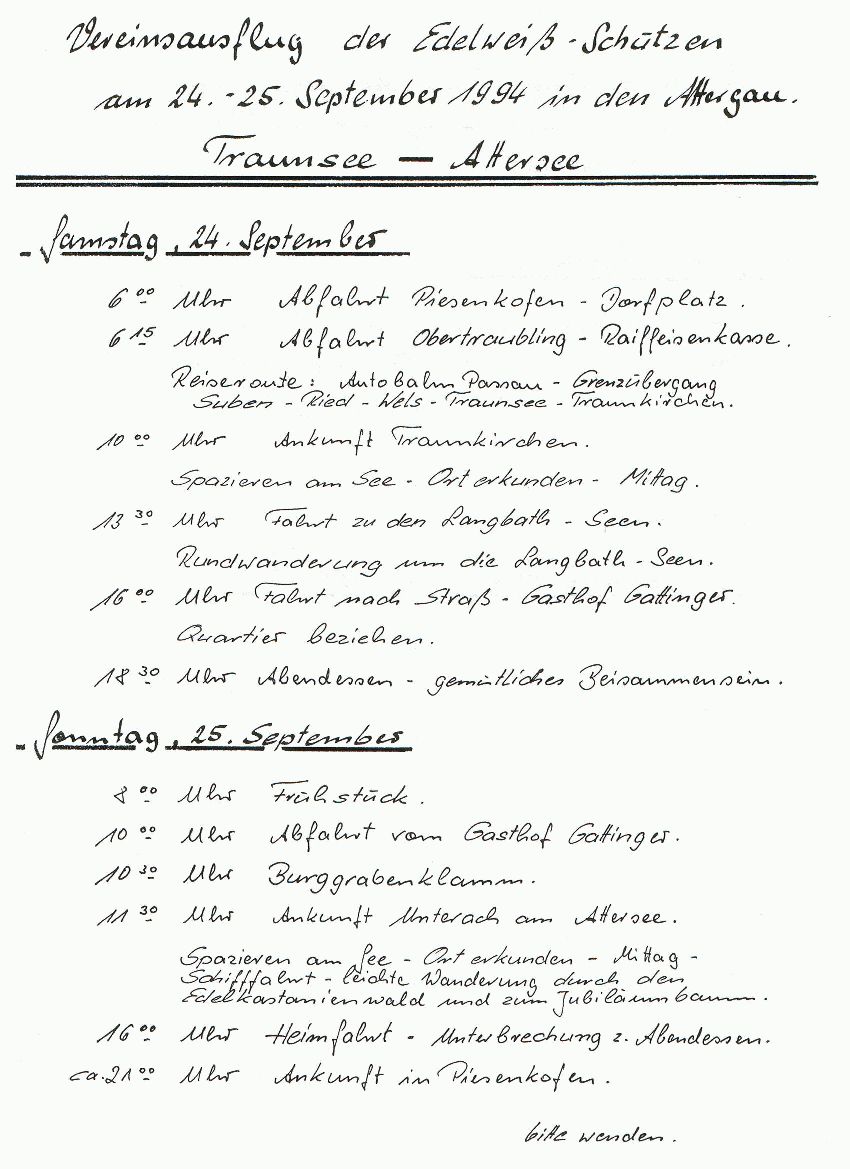 Vereinsausflug der Edelweiß-Schützen
am 24.-25. September 1994 in den Attergau.
Traunsee — Attersee
- Samstag, 24. September
6 00 Uhr Abfahrt Piesenkofen - Dorfplatz.
6 15 Uhr Abfahrt Obertraubling - Raiffeisenkasse.
Reiseroute: Autobahn Passau - Grenzübergang
Suben - Ried - Wels - Traunsee - Traunkirchen.
10 00 Uhr Ankunft Traunkirchen.
Spazieren am See - Ort erkunden - Mittag.
13 30 Uhr Fahrt zu den Langbath-Seen.
Rundwanderung um die Langbath-Seen.
16 00 Uhr Fahrt nach Straß - Gasthof Gattinger.
Quartier beziehen.
18 30 Uhr Abendessen - gemütliches Beisammensein.
- Sonntag, 25. September
8 00 Uhr Frühstück.
10 00 Uhr Abfahrt vom Gasthof Gattinger.
10 30 Uhr Burggrabenklamm.
11 30 Uhr Ankunft Unterach am Attersee.
Spazieren am See - Ort erkunden - Mittag -
Schifffahrt - leichte Wanderung durch den
Edelkastanienwald und zum Jubiläumbaum.
16 00 Uhr Heimfahrt - Unterbrechung z. Abendessen.
ca. 21 00 Uhr Ankunft in Piesenkofen.
bitte wenden.